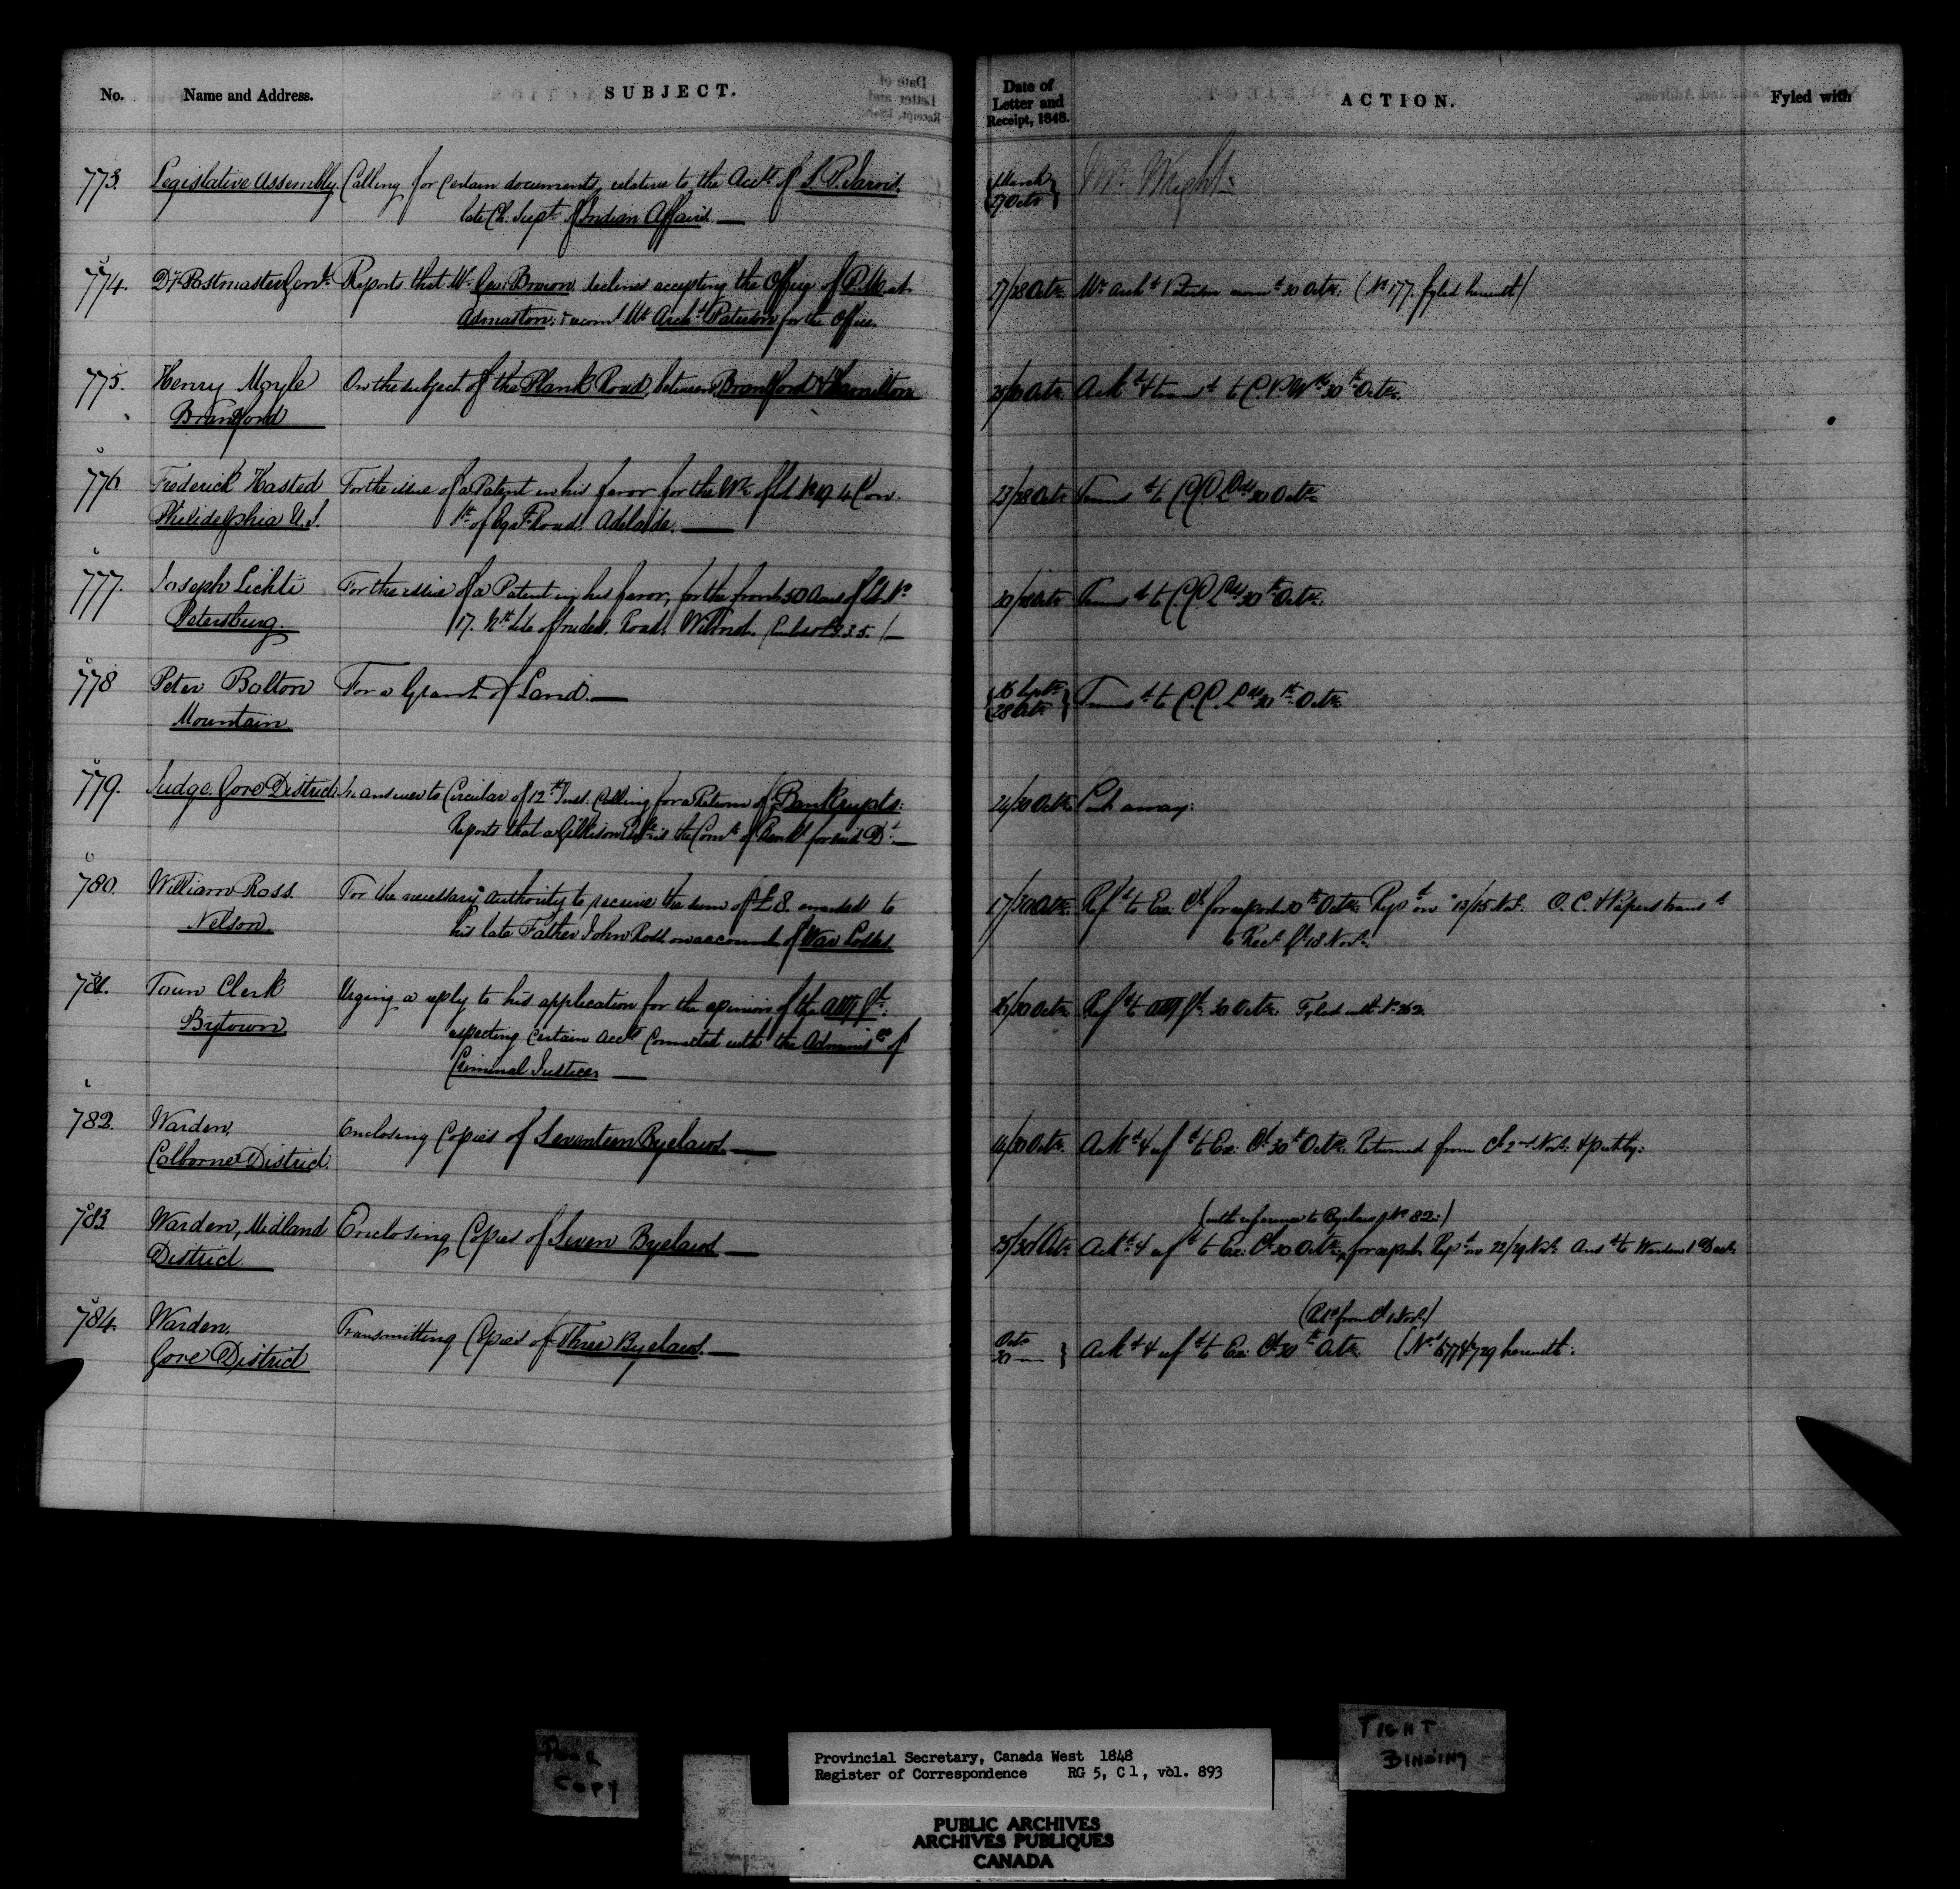 No. Name and Address. SUBJECT. Date of Letter and Receipt, 1848. ACTION. Fyled with
773. Legislative Assembly. Calling for Certain documents, relative to the Acct of S. P. Jarvis, March 27 Octr Mr. Wright
late Ch. Supt of Indian Affairs. —
774. Dy Postmaster Genl. Reports that Mr. Geo: Brown declines accepting the Office of P.M. at 27/28 Octr. Mr Archd Paterson 30 Octr: (No 177. fyled herewith)
Admaston; & recomd Mr Archd Paterson for the Office.
775. Henry Moyle On the subject of the Plank Road, between Brantford & Hamilton Ackd & transd to C.P.W. 30th Octr.
Brantford
776 Frederick Hasted For the issue of a Patent in his favor for the W½ of Lot No 19. 4 Con. 23/28 Octr Transd to C.C.Lds 30 Octr.
Philidelphia U.S. Road. Adelaide. —
777. Joseph Lichti For the issue of a Patent in his favor, for the front 50 Acres of Lt No 20/28 Octr Transd to C.C.Lds 30th Octr.
Petersburg. 17. Road, Wilmot.
778 Peter Bolton For a Grant of Land. — 16 Septr 28 Octr Transd to C.C.Lds 30th Octr.
Mountain.
779. Judge. Gore District. In answer to Circular of 12th Inst. Calling for a Return of Bankrupts: 24/30 Octr. Put away:
Reports that a Gilkison is the Comr of Bankts for said Dt. —
780. William Ross. For the necessary authority to receive the sum of £8. awarded to 17/30 Octr. Refd to Ex: Cl for report 30th Octr. Repd on 13/15 Nov. O. C. & Papers transd
Nelson. his late Father John Ross on account of War Losses. to Recr Gl 18 Novr.
781. Town Clerk Urging a reply to his application for the opinion of the Atty Gl. 16/30 Octr. Refd to Atty Gl. 30 Octr. Fyled with No 262.
Bytown. respecting Certain Accts Connected with the Administn of
Criminal Justice. —
782. Warden, Enclosing Copies of Seventeen Byelaws. — Ackd & refd to Ex: Cl 30th Octr. Returned from Cl 2nd Novr. & put by:
Colborne District.
(with reference to Byelaw No 82:)
783. Warden, Midland Enclosing Copies of Seven Byelaws — 25/30 Octr. Ackd & refd to Ex: Cl 30 Octr. for report. Repd on 22/29 Novr. Ansd to Warden 1 Decr.
District
(Retd from Cl Novr.)
784. Warden. Transmitting Copies of Three Byelaws. — Octr 30 — Ackd & refd to Ex: Cl 30th Octr. (Nos 677 & 729 herewith:
Gore District
POOR COPY
TIGHT BINDING
Provincial Secretary, Canada West 1848
Register of Correspondence RG 5, C 1, vol. 893
PUBLIC ARCHIVES
ARCHIVES PUBLIQUES
CANADA